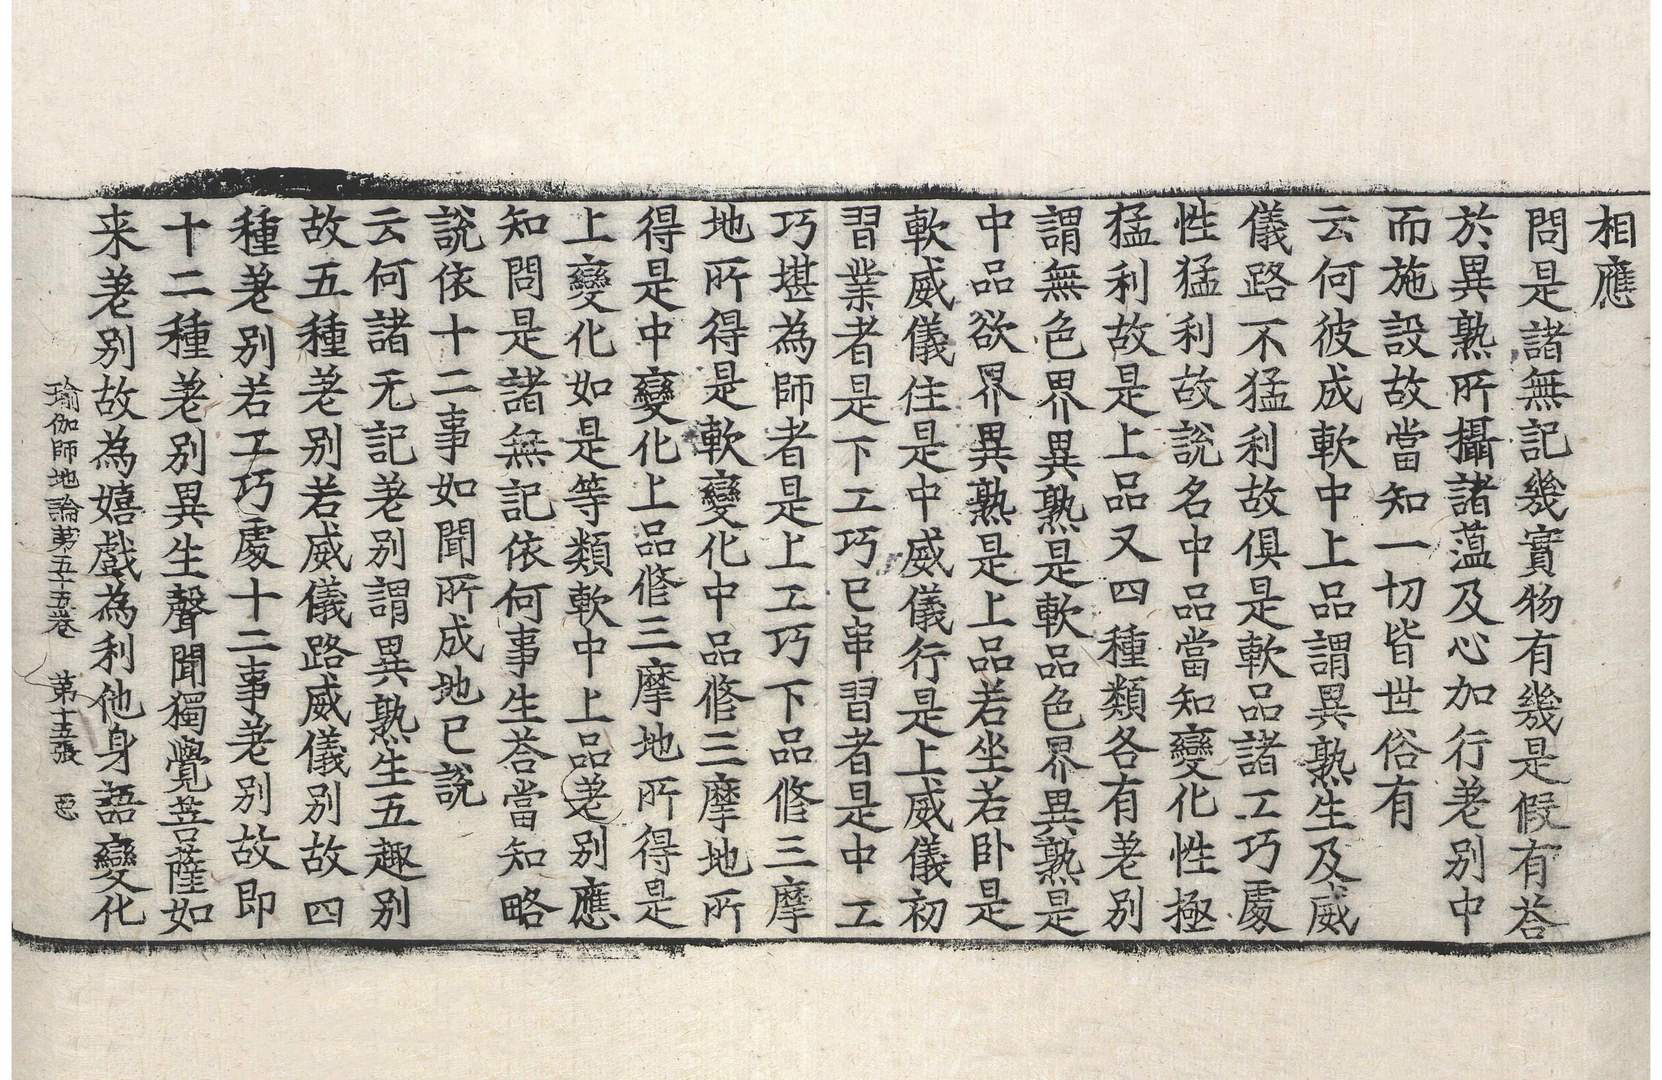 相應
問是諸無記幾實物有幾是假有荅
於異熟所攝諸薀及心加行差别中
而施設故當知一切皆世俗有
云何彼成軟中上品謂異熟生及威
儀路不猛利故俱是軟品諸工巧處
性猛利故說名中品當知變化性極
猛利故是上品又四種類各有差别
謂無色界異熟是軟品色界異熟是
中品欲界異熟是上品若坐若卧是
軟威儀住是中威儀行是上威儀初
習業者是下工巧已串習者是中工
巧堪為師者是上工巧下品修三摩
地所得是軟變化中品修三摩地所
得是中變化上品修三摩地所得是
上變化如是等類軟中上品差别應
知問是諸無記依何事生荅當知略
說依十二事如聞所成地已說
云何諸无記差别謂異熟生五趣别
故五種差别若威儀路威儀别故四
種差别若工巧處十二事差别故即
十二種差别異生聲聞獨覺菩薩如
来差别故為嬉戲為利他身語變化
瑜伽師地論第五十五卷　第十五張　惡